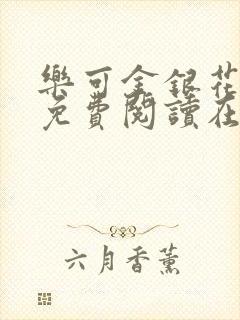 樂可金銀花
免費閱讀在
六月香薰